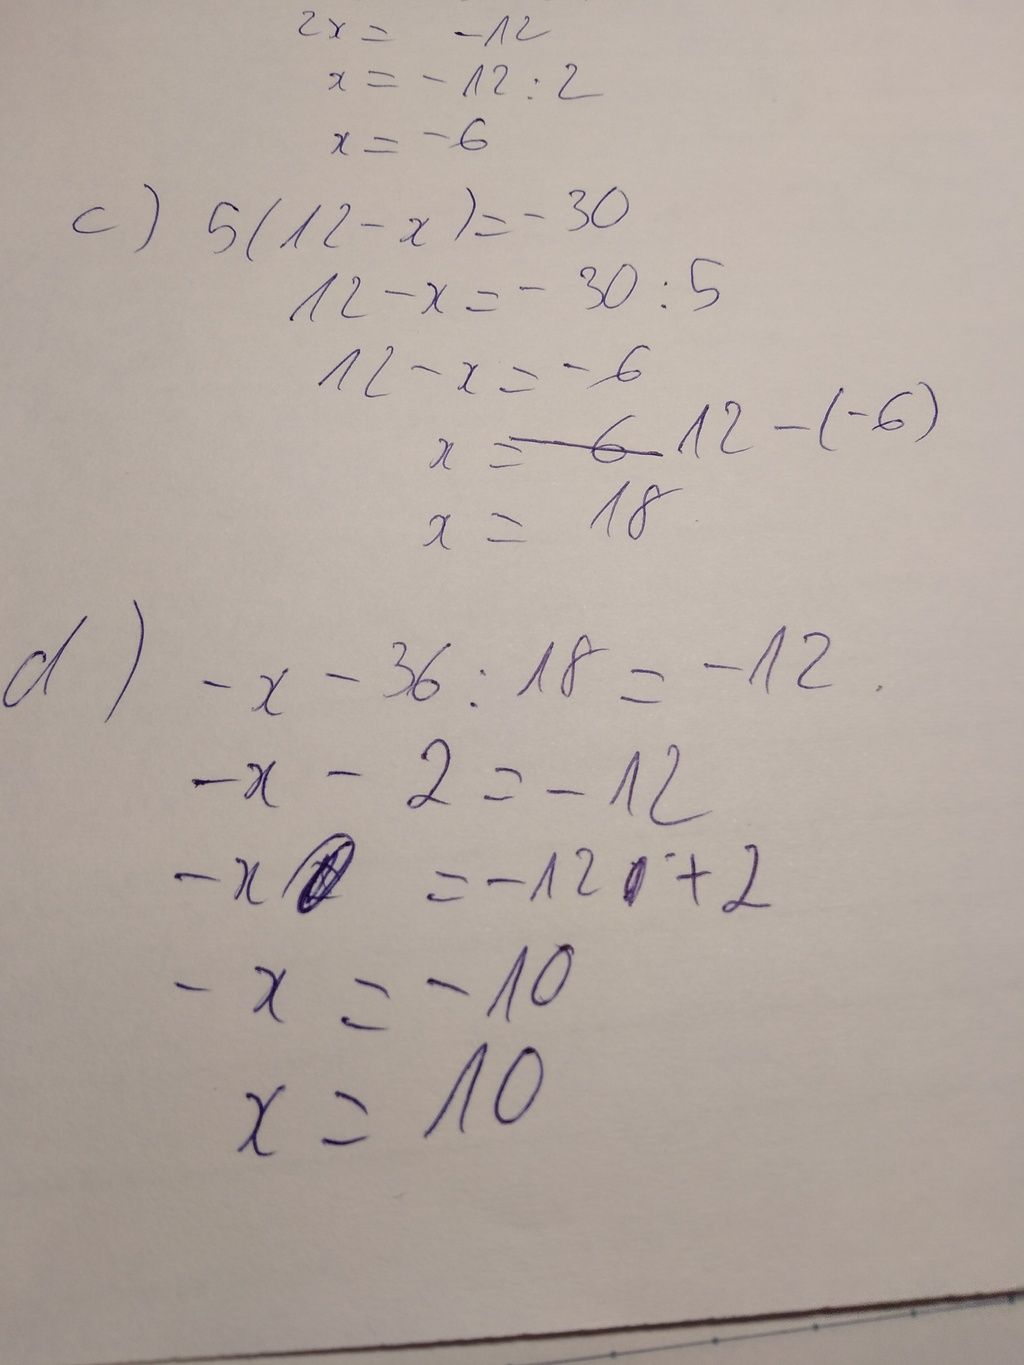 2x = -12
x = -12 : 2
x = -6
c) 5(12-x) = -30
12-x = -30 : 5
12-x = -6
x = 6 12-(-6)
x = 18
d) -x - 36 : 18 = -12.
-x - 2 = -12
-x = -12 + 2
-x = -10
x = 10